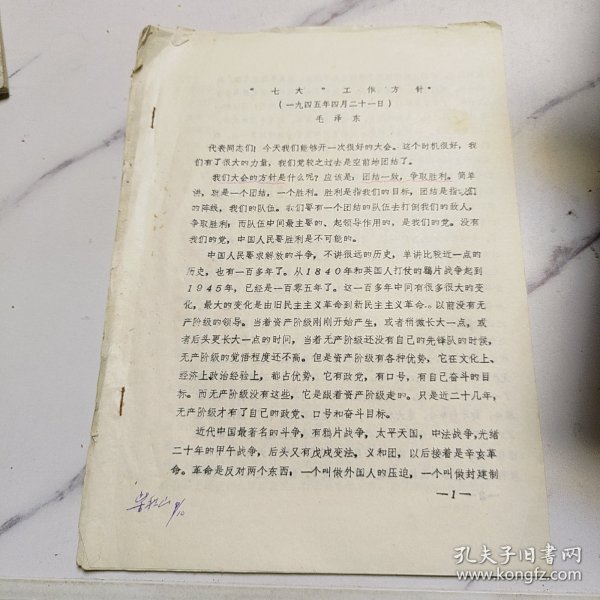 “七大”工作方针
（一九四五年四月二十一日）
毛泽东
代表同志们：今天我们能够开一次很好的大会。这个时机很好，我
们有了很大的力量，我们党较之过去是空前地团结了。
我们大会的方针是什么呢？应该是：团结一致，争取胜利。简单
讲，就是一个团结，一个胜利。胜利是指我们的目标，团结是指我们
的阵线，我们的队伍。我们要有一个团结的队伍去打倒我们的敌人，
争取胜利；而队伍中间最主要的、起领导作用的，是我们的党。没有
我们的党，中国人民要胜利是不可能的。
中国人民要求解放的斗争，不讲很远的历史，单讲比较近一点的
历史，也有一百多年了。从1840年和英国人打仗的鸦片战争起到
1945年，已经是一百零五年了。这一百多年中间有很多很大的变
化，最大的变化是由旧民主主义革命到新民主主义革命。以前没有无
产阶级的领导。当着资产阶级刚刚开始产生，或者稍微长大一点，或
者后头更长大一点的时间，当着无产阶级还没有自己的先锋队的时候，
无产阶级的觉悟程度还不高。但是资产阶级有各种优势，它在文化上、
经济上政治经验上，都占优势，它有政党，有口号，有自己奋斗的目
标。而无产阶级没有这些，它是跟着资产阶级走的。只是近二十几年，
无产阶级才有了自己的政党、口号和奋斗目标。
近代中国最著名的斗争，有鸦片战争，太平天国，中法战争，光绪
二十年的甲午战争，后头又有戊戌变法，义和团，以后接着是辛亥革
命。革命是反对两个东西，一个叫做外国人的压迫，一个叫做封建制
—1—
孔夫子旧书网
www.kongfz.com